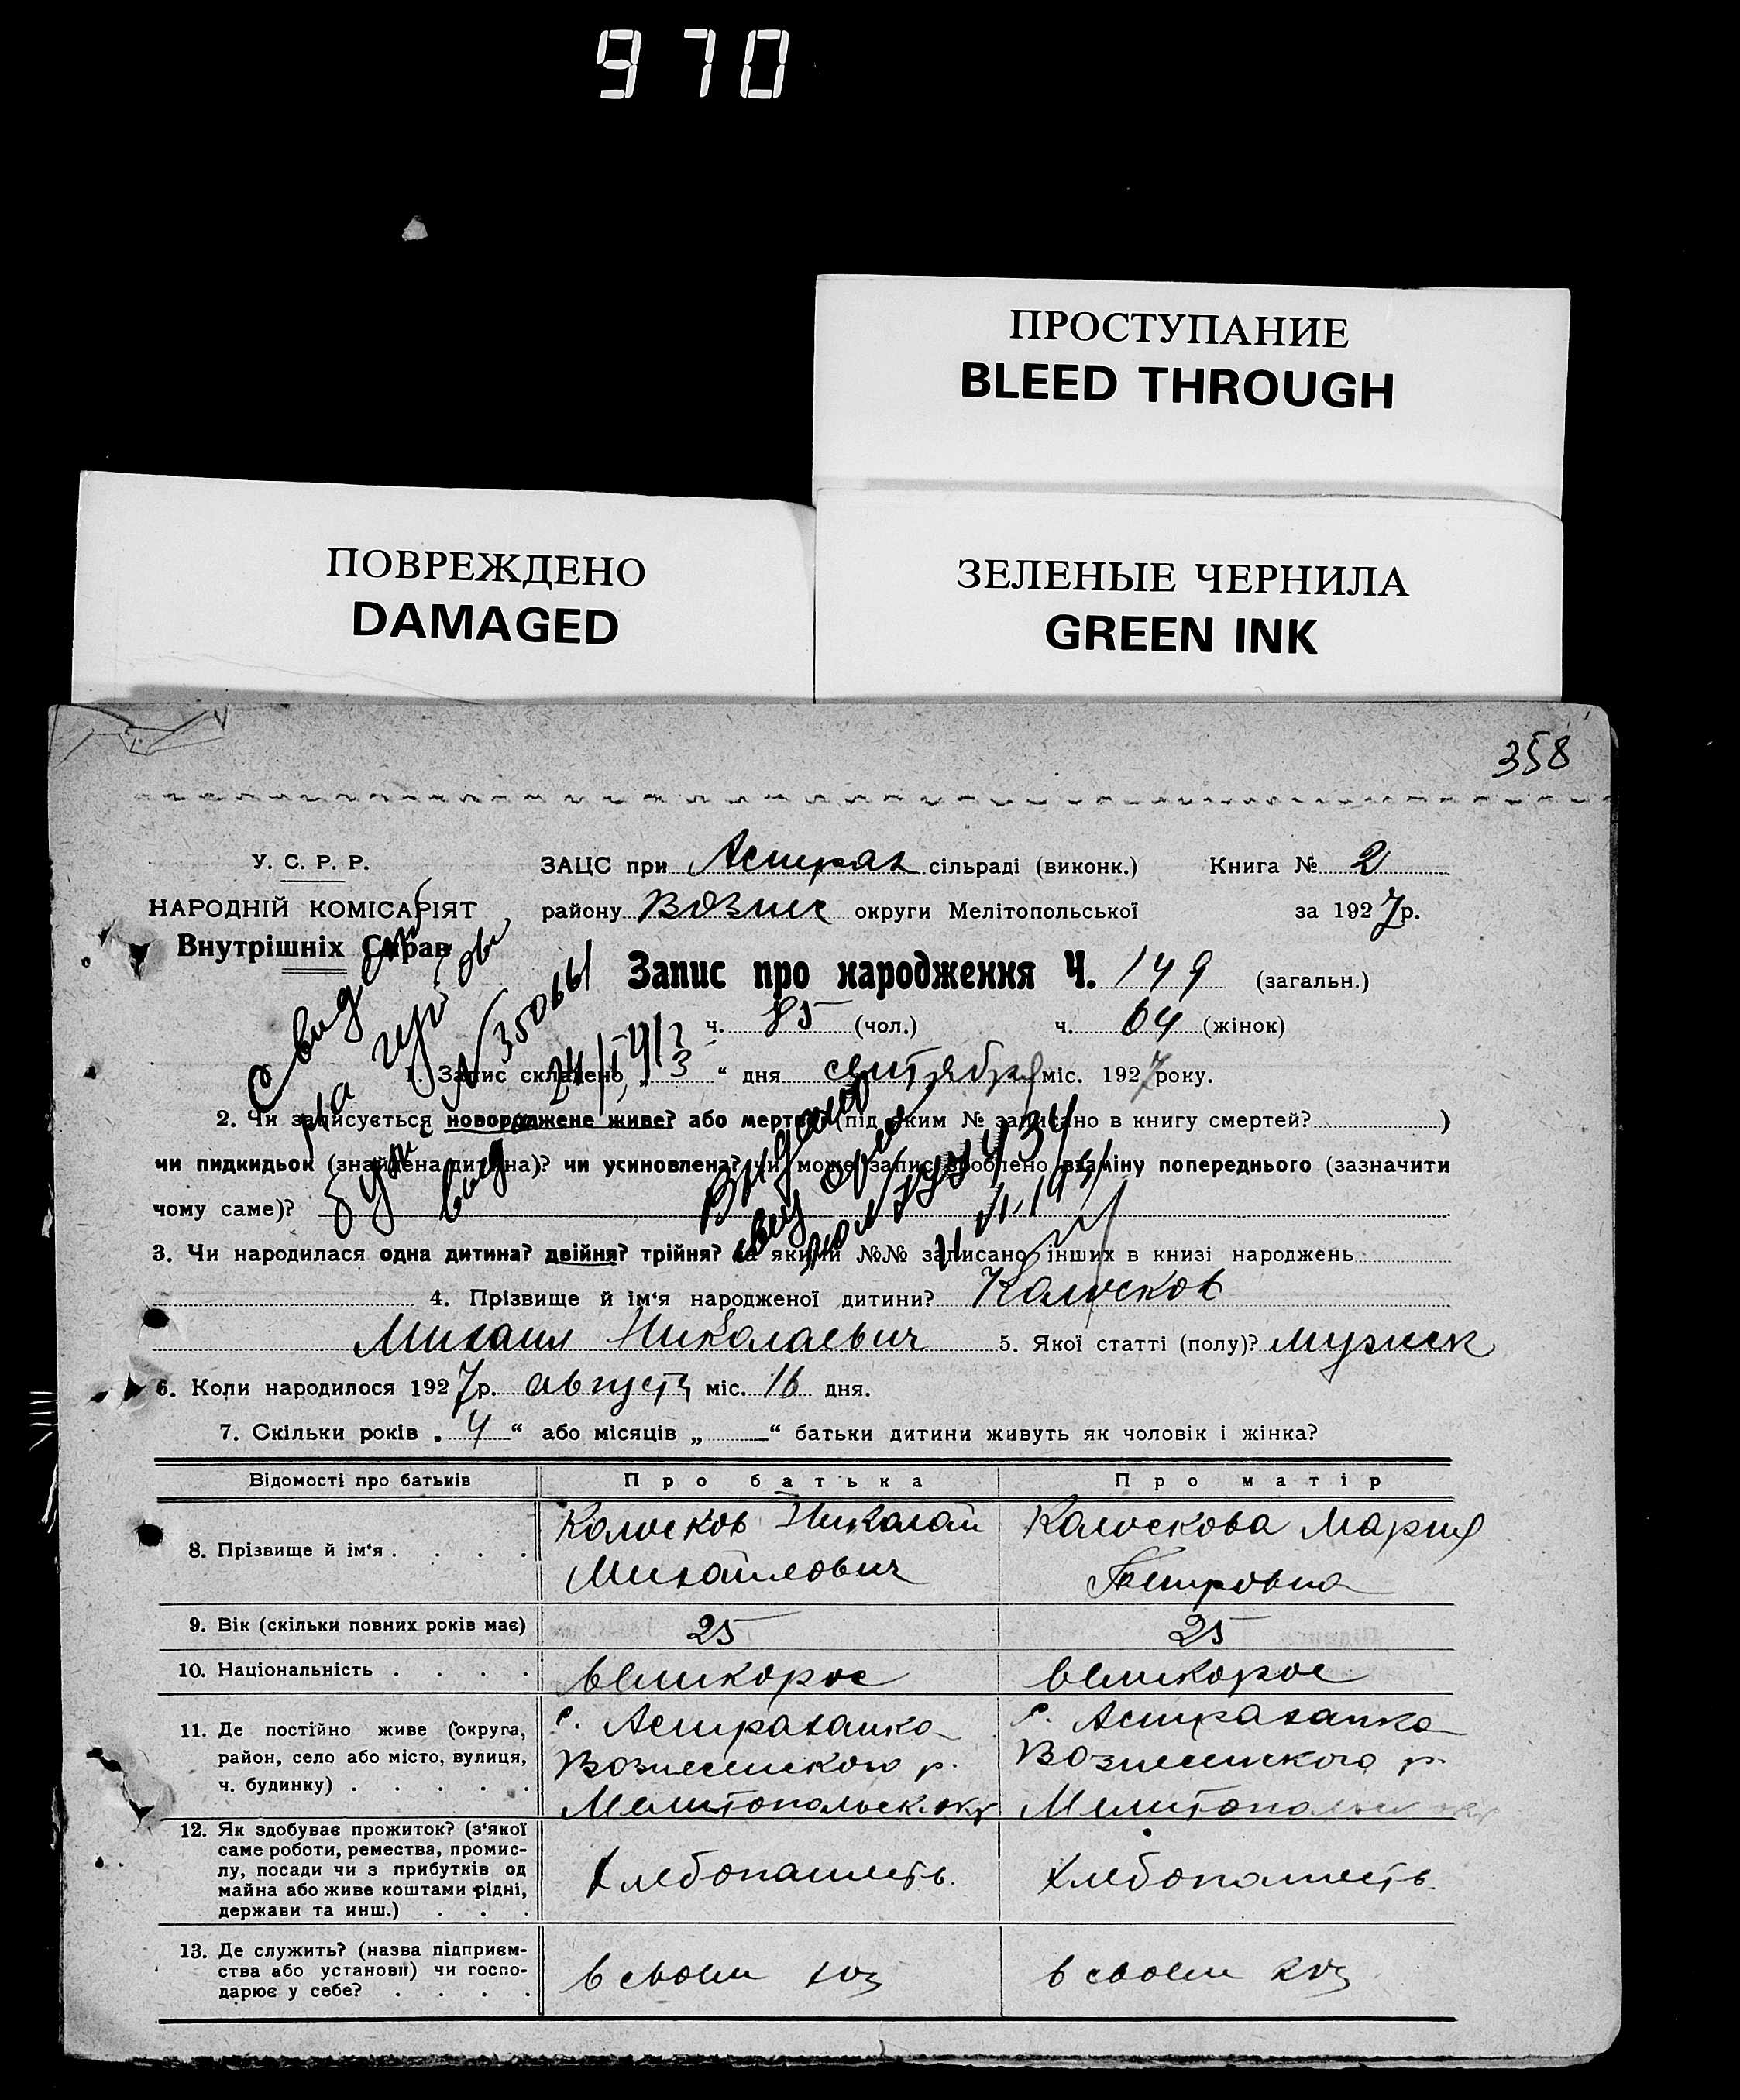 970
ПРОСТУПАНИЕ
BLEED THROUGH
ПОВРЕЖДЕНО
DAMAGED
ЗЕЛЕНЫЕ ЧЕРНИЛА
GREEN INK
358
У. С. Р. Р.
НАРОДНІЙ КОМІСАРІЯТ
Внутрішніх Справ
ЗАЦС при Астрах сільраді (виконк.) Книга № 2
району Вознес округи Мелітопольської за 1927р.
Запис про народження Ч. 149 (загальн.)
ч. 85 (чол.) ч. 64 (жінок)
1. Запис складено „3“ дня сентября міс. 1927 року.
2. Чи записується новороджене живе? або мертве? (під яким № записано в книгу смертей? )
чи пидкидьок (знайдена дитина)? чи усиновлена? чи може запис зроблено взаміну попереднього (зазначити
чому саме)?
3. Чи народилася одна дитина? двійня? трійня? за якими №№ записано інших в книзі народжень
4. Прізвище й ім‘я народженої дитини? Колосков
Михаил Николаевич 5. Якої статті (полу)? мужск
6. Коли народилося 1927р. августа міс. 16 дня.
7. Скільки років „4“ або місяців „—“ батьки дитини живуть як чоловік і жінка?
Відомості про батьків Про батька Про матір
8. Прізвище й ім‘я . . . . Колосков Николай Михайлович Колоскова Мария Петровна
9. Вік (скільки повних років має) 25 25
10. Національність . . . . великорос великорос
11. Де постійно живе (округа, район, село або місто, вулиця, ч. будинку) . . . . . с. Астраханка Вознесенского р. Мелитопольск. окр с. Астраханка Вознесенского р. Мелитопольск окр
12. Як здобуває прожиток? (з‘якої саме роботи, ремества, промислу, посади чи з прибутків од майна або живе коштами рідні, держави та инш.) . . . Хлебопашеств. Хлебопашеств.
13. Де служить? (назва підприємства або установи) чи господарює у себе? . . . . в своем хоз в своем хоз